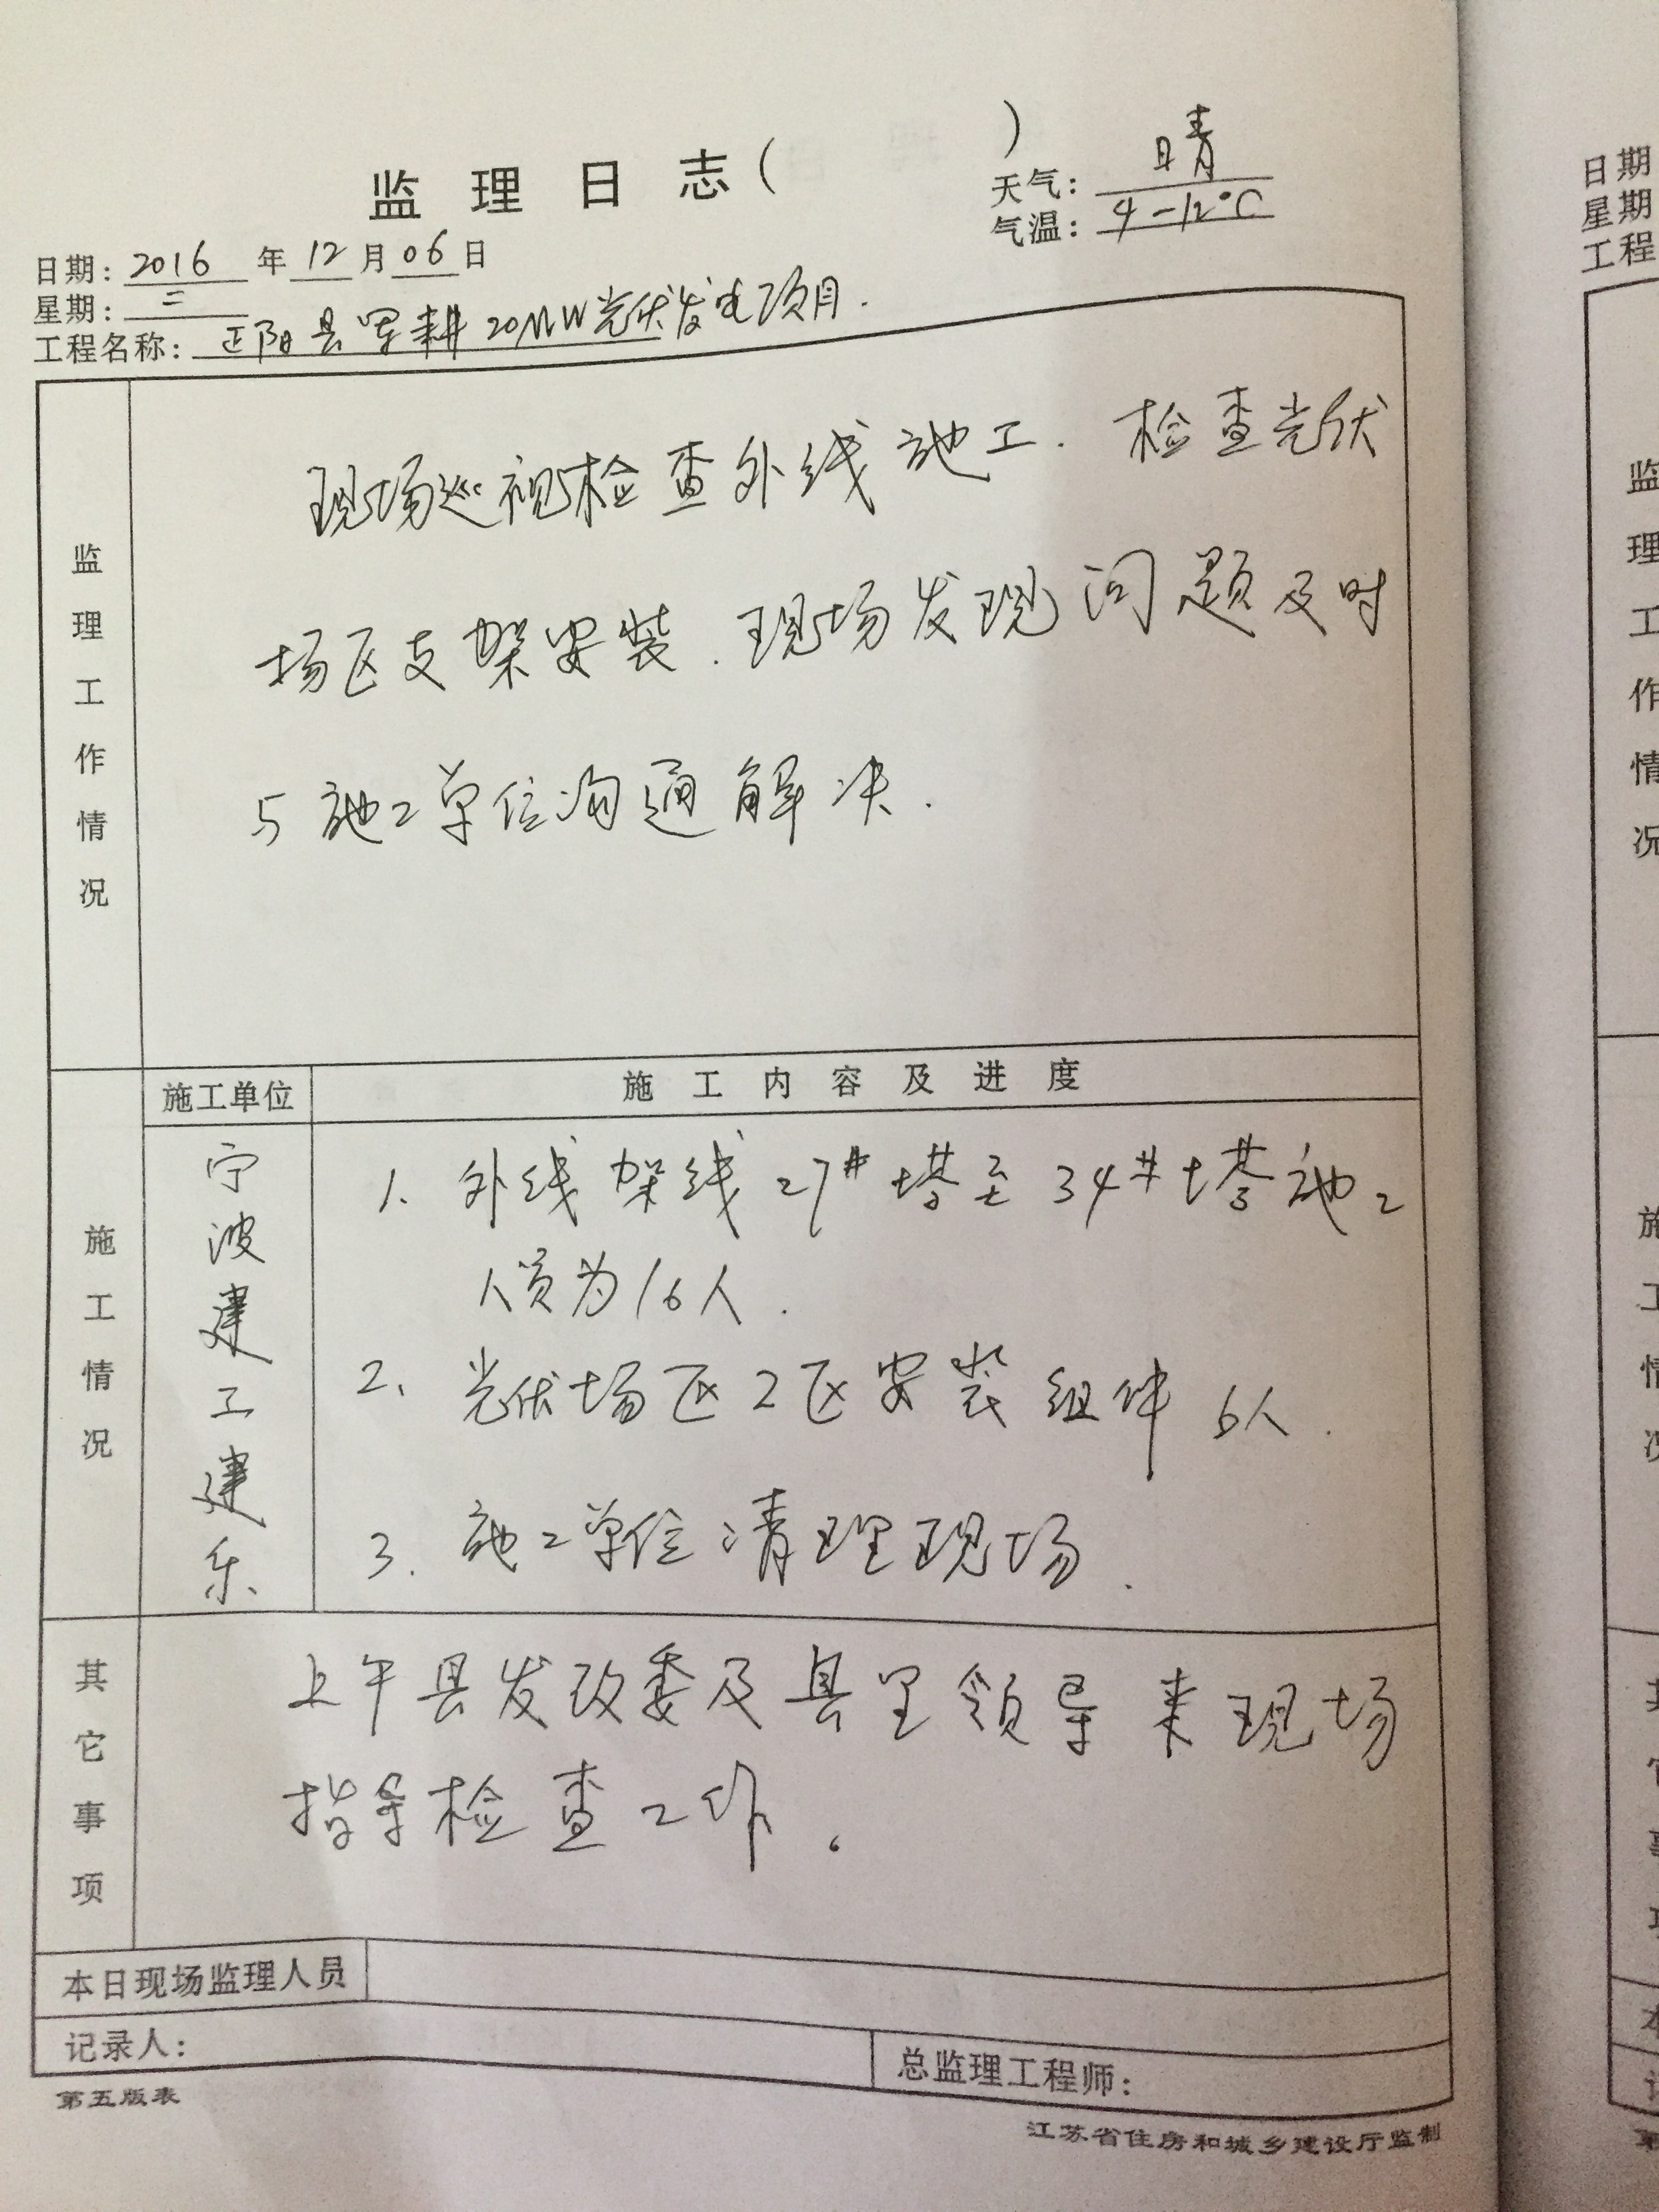 监理日志（　　　）
天气：晴
气温：4-12℃
日期：2016年12月06日
星期：二
工程名称：正阳县军耕20MW光伏发电项目.
监理工作情况
现场巡视检查外线施工.检查光伏
场区支架安装.现场发现问题及时
与施工单位沟通解决.
施工情况
施工单位
施工内容及进度
宁波建工建乐
1、外线架线27#塔至34#塔施工
人员为16人.
2、光伏场区2区安装组件6人.
3.施工单位清理现场.
其它事项
上午县发改委及县里领导来现场
指导检查工作。
本日现场监理人员
记录人：
总监理工程师：
第五版表
江苏省住房和城乡建设厅监制
日期
星期
工程
监理工作情况